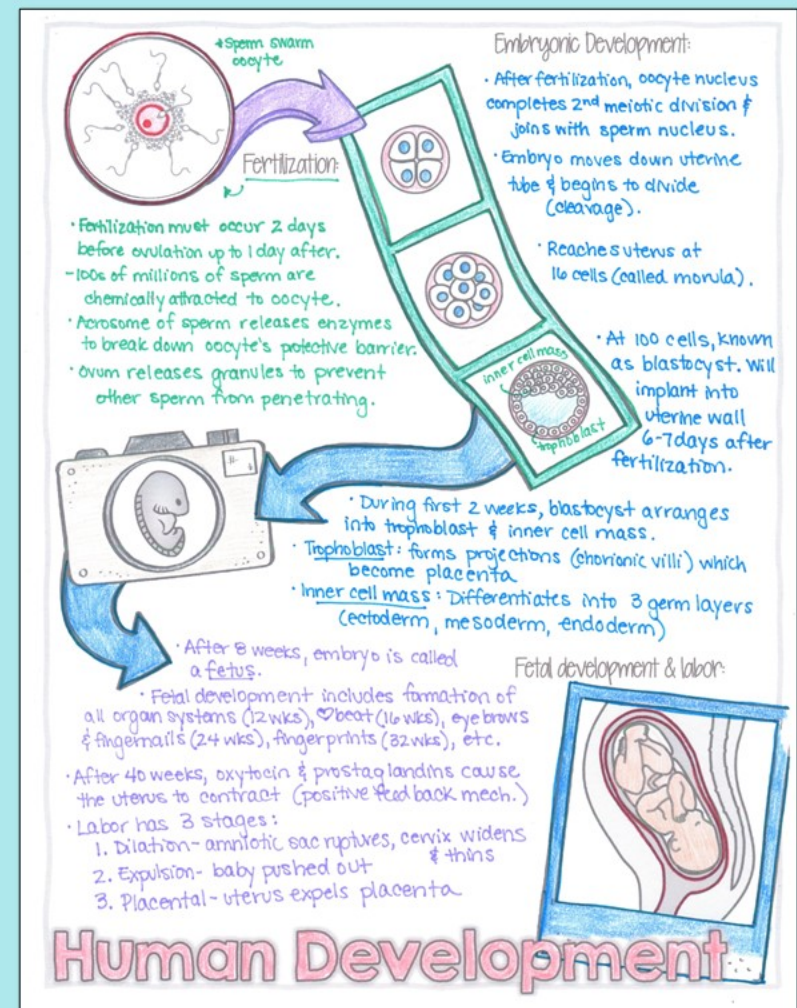 *Sperm swarm
oocyte
Fertilization:
• Fertilization must occur 2 days
before ovulation up to 1 day after.
- 100s of millions of sperm are
chemically attracted to oocyte.
• Acrosome of sperm releases enzymes
to break down oocyte's protective barrier.
• Ovum releases granules to prevent
other sperm from penetrating.
Embryonic Development:
• After fertilization, oocyte nucleus
completes 2nd meiotic division &
joins with sperm nucleus.
• Embryo moves down uterine
tube & begins to divide
(cleavage).
• Reaches uterus at
16 cells (called morula).
• At 100 cells, known
as blastocyst. Will
implant into
uterine wall
6-7 days after
fertilization.
inner cell mass
trophoblast
• During first 2 weeks, blastocyst arranges
into trophoblast & inner cell mass.
• Trophoblast: forms projections (chorionic villi) which
become placenta
• Inner cell mass: Differentiates into 3 germ layers
(ectoderm, mesoderm, endoderm)
Fetal development & labor:
• After 8 weeks, embryo is called
a fetus.
• Fetal development includes formation of
all organ systems (12 wks), ♡beat (16 wks), eyebrows
& fingernails (24 wks), fingerprints (32 wks), etc.
• After 40 weeks, oxytocin & prostaglandins cause
the uterus to contract (positive feedback mech.)
• Labor has 3 stages:
1. Dilation- amniotic sac ruptures, cervix widens
& thins
2. Expulsion- baby pushed out
3. Placental- uterus expels placenta
Human Development